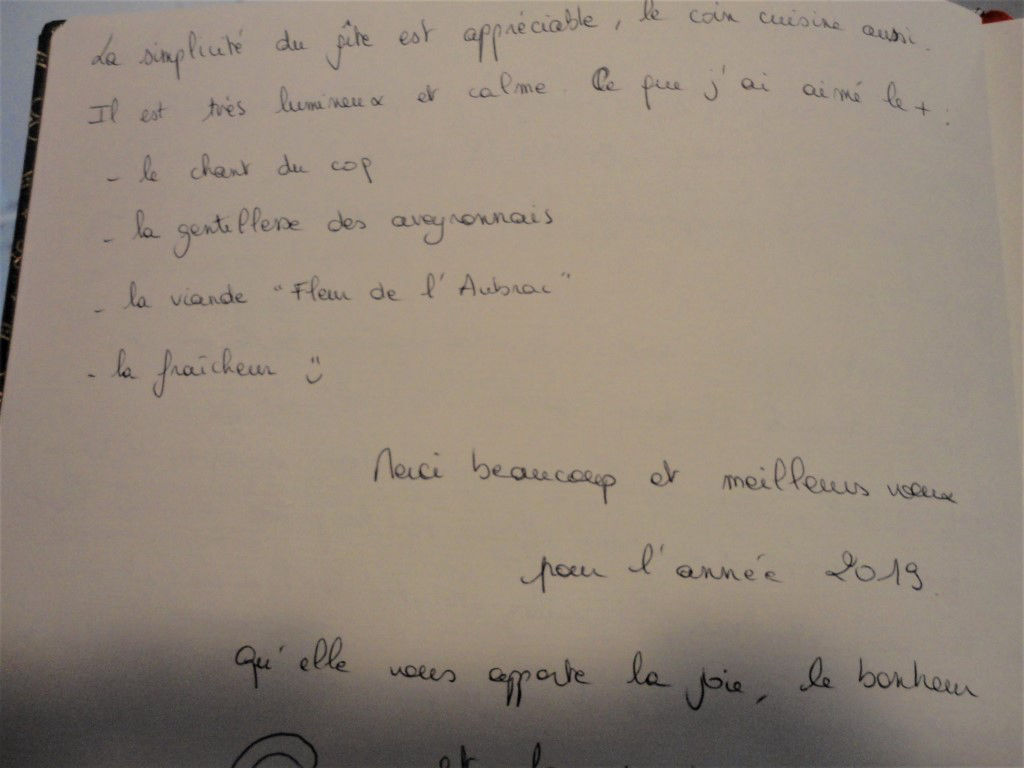 La simplicité du gîte est appréciable, le coin cuisine aussi.
Il est très lumineux et calme. Ce que j'ai aimé le + :
- le chant du coq
- la gentillesse des aveyronnais
- la viande "Fleur de l'Aubrac"
- la fraîcheur :)
Merci beaucoup et meilleurs vœux
pour l'année 2019
Qu'elle vous apporte la joie, le bonheur
et